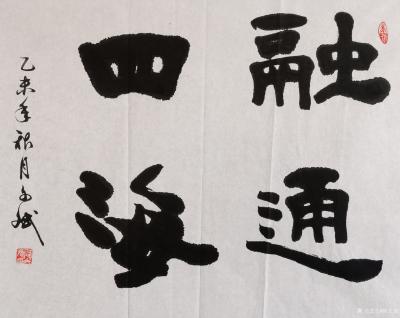 融通
四海
乙未年秋月